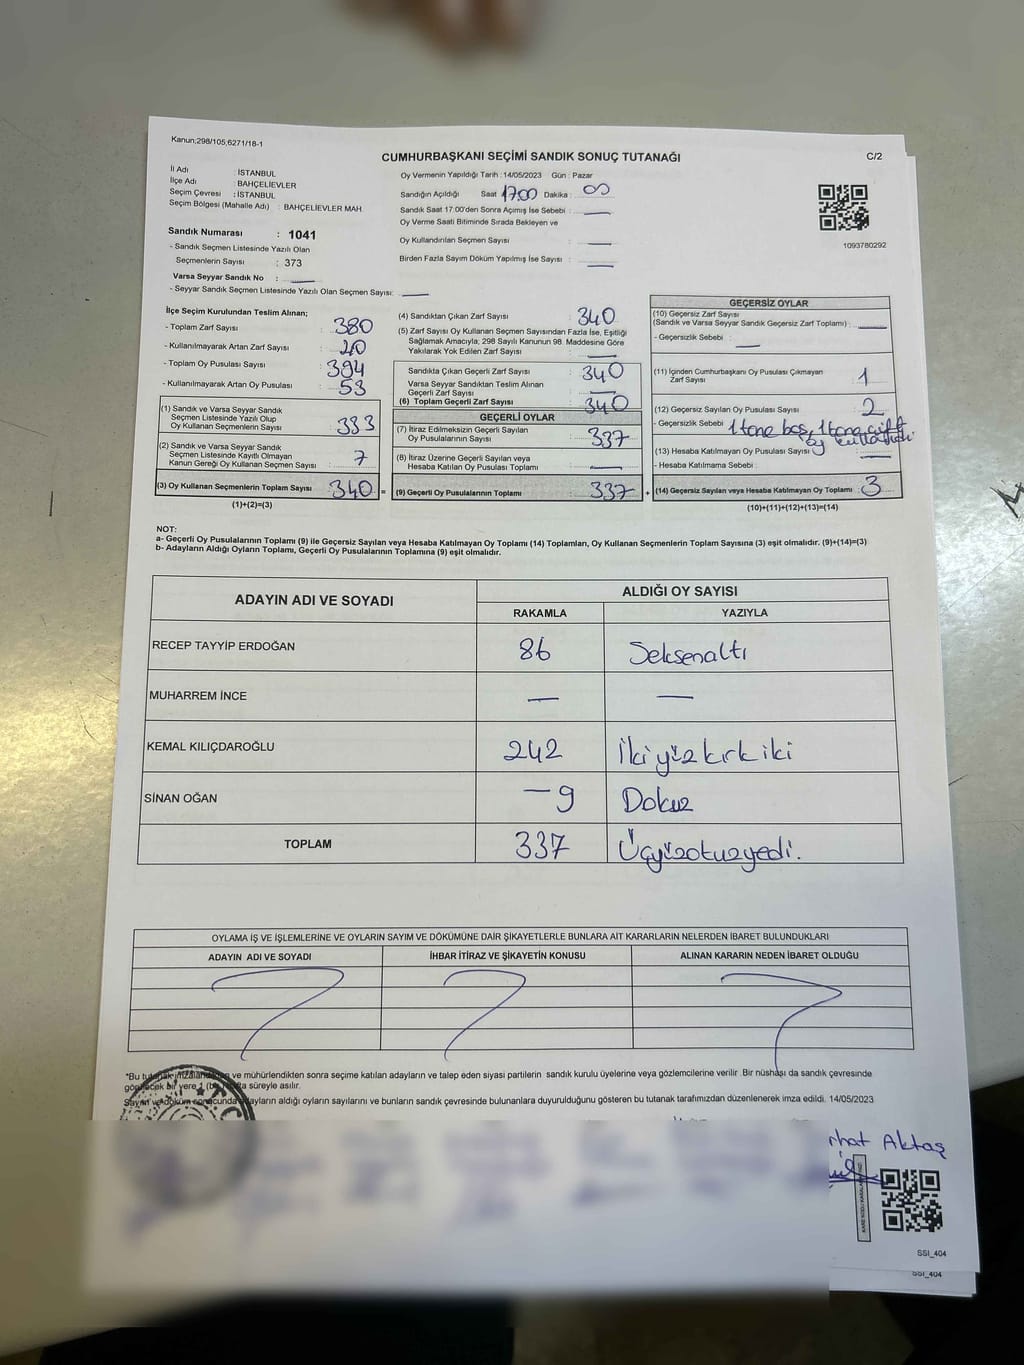 Kanun:298/105,6271/18-1
CUMHURBAŞKANI SEÇİMİ SANDIK SONUÇ TUTANAĞI
C/2
İl Adı : İSTANBUL
İlçe Adı : BAHÇELİEVLER
Seçim Çevresi : İSTANBUL
Seçim Bölgesi (Mahalle Adı) : BAHÇELİEVLER MAH.
Sandık Numarası : 1041
- Sandık Seçmen Listesinde Yazılı Olan
Seçmenlerin Sayısı : 373
Varsa Seyyar Sandık No : —
- Seyyar Sandık Seçmen Listesinde Yazılı Olan Seçmen Sayısı: —
Oy Vermenin Yapıldığı Tarih :14/05/2023 Gün : Pazar
Sandığın Açıldığı Saat 17.00 Dakika : 00
Sandık Saat 17:00'den Sonra Açımış İse Sebebi : —
Oy Verme Saati Bitiminde Sırada Bekleyen ve
Oy Kullandırılan Seçmen Sayısı : —
Birden Fazla Sayım Döküm Yapılmış İse Sayısı : —
1093780292
İlçe Seçim Kurulundan Teslim Alınan;
- Toplam Zarf Sayısı : 380
- Kullanılmayarak Artan Zarf Sayısı : 40
- Toplam Oy Pusulası Sayısı : 394
- Kullanılmayarak Artan Oy Pusulası : 53
(1) Sandık ve Varsa Seyyar Sandık
Seçmen Listesinde Yazılı Olup
Oy Kullanan Seçmenlerin Sayısı : 333
(2) Sandık ve Varsa Seyyar Sandık
Seçmen Listesinde Kayıtlı Olmayan
Kanun Gereği Oy Kullanan Seçmen Sayısı : 7
(3) Oy Kullanan Seçmenlerin Toplam Sayısı : 340 =
(1)+(2)=(3)
(4) Sandıktan Çıkan Zarf Sayısı : 340
(5) Zarf Sayısı Oy Kullanan Seçmen Sayısından Fazla İse, Eşitliği
Sağlamak Amacıyla; 298 Sayılı Kanunun 98. Maddesine Göre
Yakılarak Yok Edilen Zarf Sayısı : —
Sandıkta Çıkan Geçerli Zarf Sayısı : 340
Varsa Seyyar Sandıktan Teslim Alınan
Geçerli Zarf Sayısı : —
(6) Toplam Geçerli Zarf Sayısı : 340
GEÇERLİ OYLAR
(7) İtiraz Edilmeksizin Geçerli Sayılan
Oy Pusulalarının Sayısı : 337
(8) İtiraz Üzerine Geçerli Sayılan veya
Hesaba Katılan Oy Pusulası Toplamı : —
(9) Geçerli Oy Pusulalarının Toplamı : 337 +
GEÇERSİZ OYLAR
(10) Geçersiz Zarf Sayısı
(Sandık ve Varsa Seyyar Sandık Geçersiz Zarf Toplamı) : —
- Geçersizlik Sebebi : —
(11) İçinden Cumhurbaşkanı Oy Pusulası Çıkmayan
Zarf Sayısı : 1
(12) Geçersiz Sayılan Oy Pusulası Sayısı : 2
- Geçersizlik Sebebi : 1 tane boş, 1 tane çift
oy kullanıldı
(13) Hesaba Katılmayan Oy Pusulası Sayısı : —
- Hesaba Katılmama Sebebi :
(14) Geçersiz Sayılan veya Hesaba Katılmayan Oy Toplamı : 3
(10)+(11)+(12)+(13)=(14)
NOT:
a- Geçerli Oy Pusulalarının Toplamı (9) ile Geçersiz Sayılan veya Hesaba Katılmayan Oy Toplamı (14) Toplamları, Oy Kullanan Seçmenlerin Toplam Sayısına (3) eşit olmalıdır. (9)+(14)=(3)
b- Adayların Aldığı Oyların Toplamı, Geçerli Oy Pusulalarının Toplamına (9) eşit olmalıdır.
ADAYIN ADI VE SOYADI
ALDIĞI OY SAYISI
RAKAMLA YAZIYLA
RECEP TAYYİP ERDOĞAN 86 Seksenaltı
MUHARREM İNCE — —
KEMAL KILIÇDAROĞLU 242 İkiyüzkırkiki
SİNAN OĞAN — 9 Dokuz
TOPLAM 337 Üçyüzotuzyedi.
OYLAMA İŞ VE İŞLEMLERİNE VE OYLARIN SAYIM VE DÖKÜMÜNE DAİR ŞİKAYETLERLE BUNLARA AİT KARARLARIN NELERDEN İBARET BULUNDUKLARI
ADAYIN ADI VE SOYADI İHBAR İTİRAZ VE ŞİKAYETİN KONUSU ALINAN KARARIN NEDEN İBARET OLDUĞU
*Bu tutanak imzalandıktan ve mühürlendikten sonra seçime katılan adayların ve talep eden siyasi partilerin sandık kurulu üyelerine veya gözlemcilerine verilir. Bir nüshası da sandık çevresinde
görülecek bir yere 1 (bir) hafta süreyle asılır.
Sayım ve döküm sonucunda adayların aldığı oyların sayılarını ve bunların sandık çevresinde bulunanlara duyurulduğunu gösteren bu tutanak tarafımızdan düzenlenerek imza edildi. 14/05/2023
rhat Aktaş
SSI_404
SSI_404